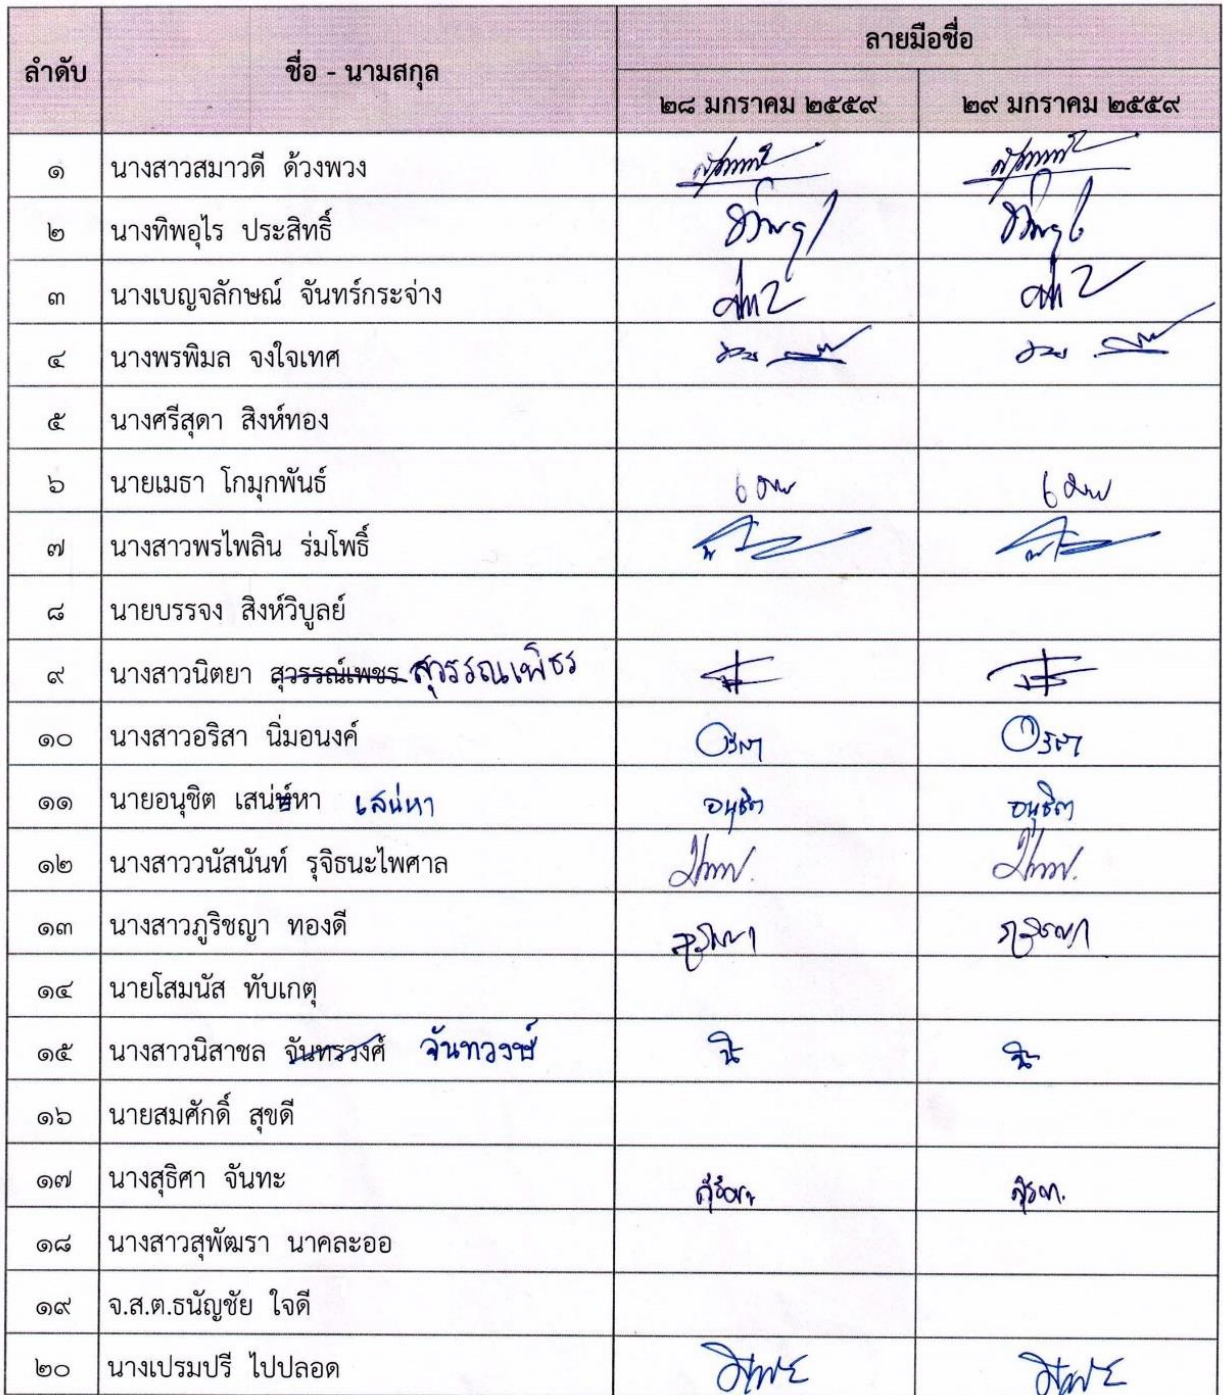 ลำดับ ชื่อ - นามสกุล ลายมือชื่อ
๒๘ มกราคม ๒๕๕๙ ๒๙ มกราคม ๒๕๕๙
๑ นางสาวสมาวดี ด้วงพวง
๒ นางทิพอุไร ประสิทธิ์
๓ นางเบญจลักษณ์ จันทร์กระจ่าง
๔ นางพรพิมล จงใจเทศ
๕ นางศรีสุดา สิงห์ทอง
๖ นายเมธา โกมุกพันธ์
๗ นางสาวพรไพลิน ร่มโพธิ์
๘ นายบรรจง สิงห์วิบูลย์
๙ นางสาวนิตยา สุวรรณ์เพชร สุวรรณเพ็ชร
๑๐ นางสาวอริสา นิ่มอนงค์ อริสา อริสา
๑๑ นายอนุชิต เสน่ห์หา เสน่หา อนุชิต อนุชิต
๑๒ นางสาววนัสนันท์ รุจิธนะไพศาล
๑๓ นางสาวภูริชญา ทองดี
๑๔ นายโสมนัส ทับเกตุ
๑๕ นางสาวนิสาชล จันทรวงศ์ จันทวงษ์
๑๖ นายสมศักดิ์ สุขดี
๑๗ นางสุธิศา จันทะ
๑๘ นางสาวสุพัฒรา นาคละออ
๑๙ จ.ส.ต.ธนัญชัย ใจดี
๒๐ นางเปรมปรี ไปปลอด